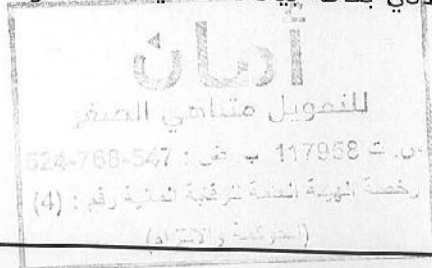 أمان
للتمويل متناهي الصغر
س. ت 117958 ب ض : 547-768-524
رخصة الهيئة العامة للرقابة المالية رقم : (4)
(الحوكمة والالتزام)